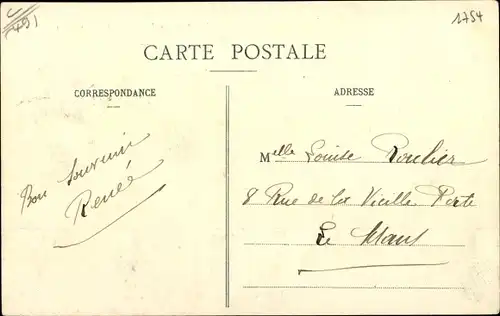 1754
CARTE POSTALE
CORRESPONDANCE
ADRESSE
Bon Souvenir
Renée
Melle Louise Roulier
8 Rue de la Vieille Porte
Le Mans